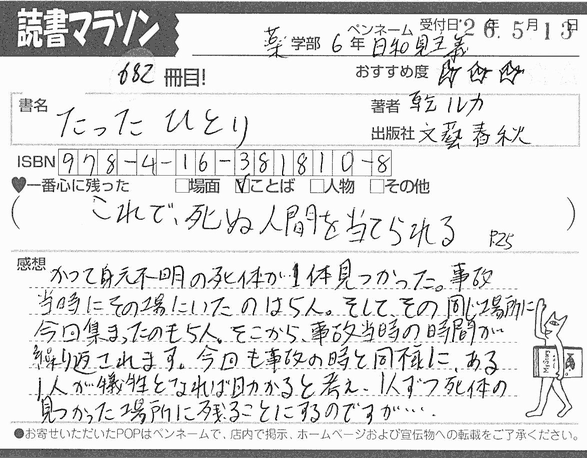 読書マラソン
受付日'26年5月13日
薬 学部 6年 ペンネーム 日和見主義
682 冊目!
おすすめ度 ☆☆☆
書名 たった ひとり
著者 乾 ルカ
出版社 文藝春秋
ISBN 978-4-16-381810-8
♥一番心に残った □場面 ☑ことば □人物 □その他
(これで、死ぬ人間を当てられる P25)
感想
かつて身元不明の死体が1体見つかった。事故
当時にその場にいたのは5人。そして、その同じ場所に
今回集まったのも5人。そこから、事故当時の時間が
繰り返されます。今回も事故の時と同様に、ある
1人が犠牲となれば助かると考え、1人ずつ死体の
見つかった場所に残ることにするのですが…。
●お寄せいただいたPOPはペンネームで、店内で掲示、ホームページおよび宣伝物への転載をご了承ください。